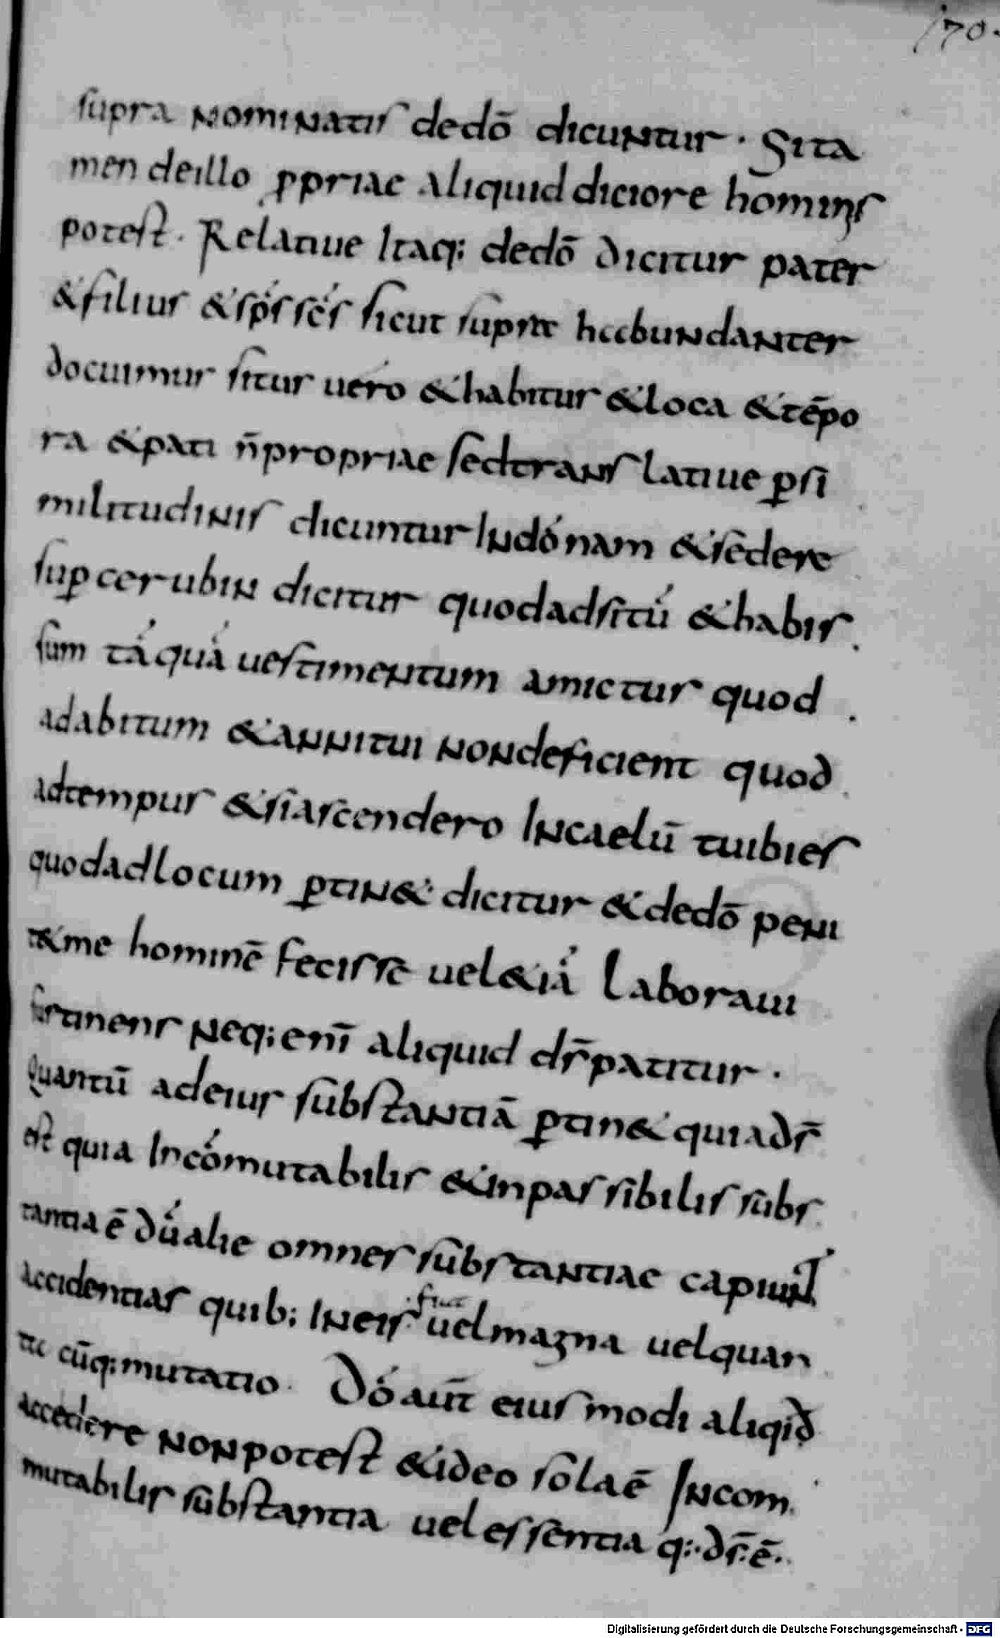 170.
supra nominatis dedō dicuntur · Sita
men deillo ꝓpriae aliquid diciore hominis
potest · Relatiue Itaq; dedō dicitur pater
&filius &sp̄s sc̄s sicut supra habundanter
docuimus situs uero &habitus &loca &tēpo
ra &pati n̄propriae sedtranslatiue ꝑsi
militudinis dicuntur Indō nam &sedere
suꝑ cerubin dicitur quodadsitū &habis
sum tāquā uestimentum amictus quod
adabitum &annitui nondeficient quod
adtempus &siascendero Incaelū tuibies
quodadlocum ꝑtin& dicitur &dedō peni
t&me hominē fecisse uel&iā Laboraui
sustinens Neq; enī aliquid dr̄patitur ·
Quantū adeius substantiā ꝑtin& quiadr̄
est quia Incōmutabilis &inpassibilis subs
tantia ē dū alie omnes substantiae capiunt
accidentias quib; Ineis fiat uelmagna uelquan
ta cūq; mutatio · Dō aut̄ eiusmodi aliqid
accedere nonpotest &ideo solaē Incom
mutabilis substantia uel essentia q;· dr̄·ē·
Digitalisierung gefördert durch die Deutsche Forschungsgemeinschaft - DFG